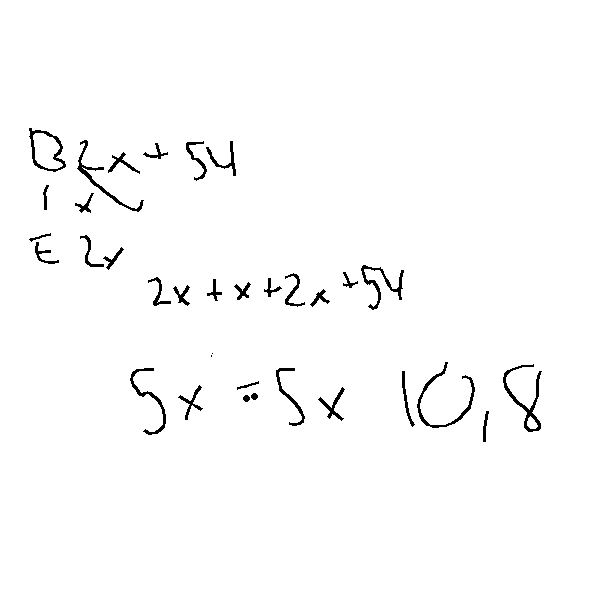 B 2x + 54
I x
E 2x
2x + x + 2x + 54
5x ÷ 5x 10,8